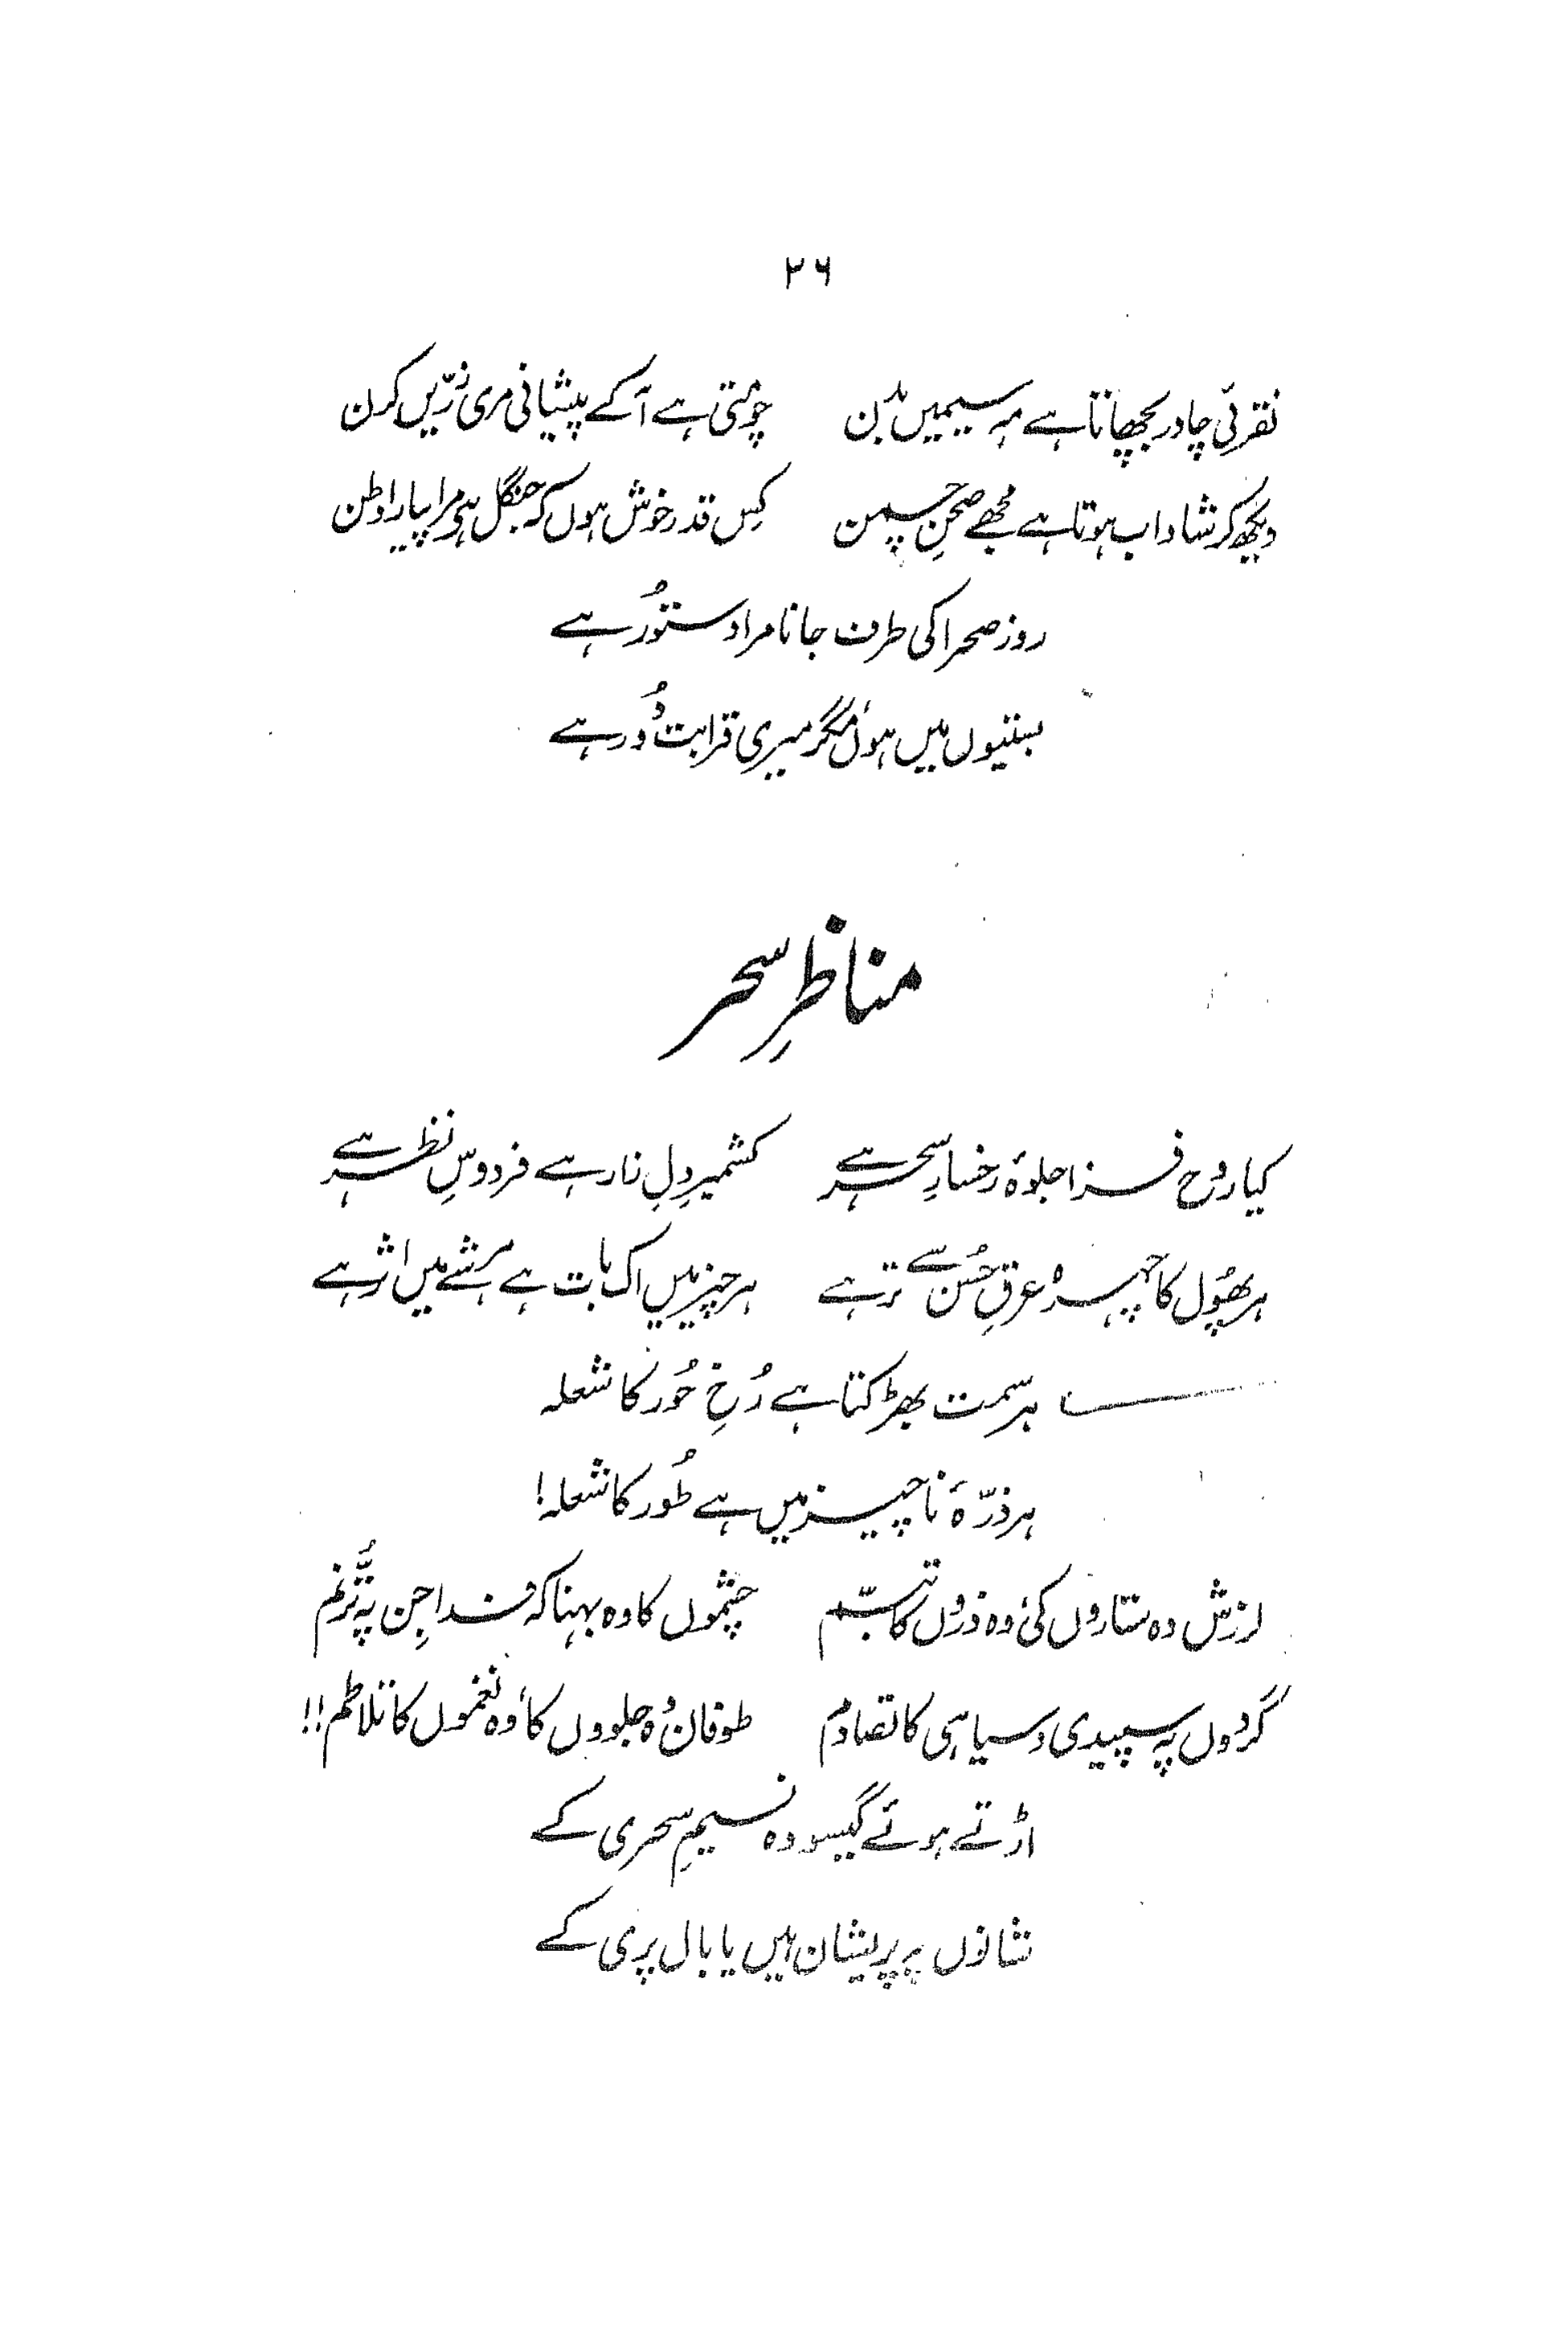 ۲۶
نقرئی چادر بچھاتا ہے مہِ سیمیں بدن چومتی ہے آکے پیشانی مری زرّیں کرن
دیکھ کر شاداب ہوتا ہے مجھے صحنِ چمن کِس قدر خوش ہوں کہ جنگل ہی مرا پیارا وطن
روز صحرا کی طرف جانا مرا دستوُر ہے
بستیوں میں ہوں مگر میری قرابت دُور ہے
مناظرِ سحر
کیا روُح فزا جلوۂ رخسارِ سحر ہے کشمیر دِلِ زار ہے فردوسِ نظر ہے
ہر پھوُل کا چہرہ عرقِ حُسن سے تر ہے ہر چیز میں اک بات ہے ہر شے میں اثر ہے
ہر سمت بھڑکتا ہے رُخِ حُور کا شعلہ
ہر ذرّۂ ناچیز میں ہے طُور کا شعلہ!
لرزش وہ ستاروں کی، وہ ذروں کا تبسّم چشموں کا وہ بہنا کہ فدا جِن پہ ترنُّم
گردوں پہ سپیدی و سیاہی کا تصادم طوفان وُہ جلووں کا، وہ نغموں کا تلاطم!!
اڑتے ہوئے گیسو وہ نسیمِ سحری کے
شانوں پہ پریشان ہیں یا بال پری کے